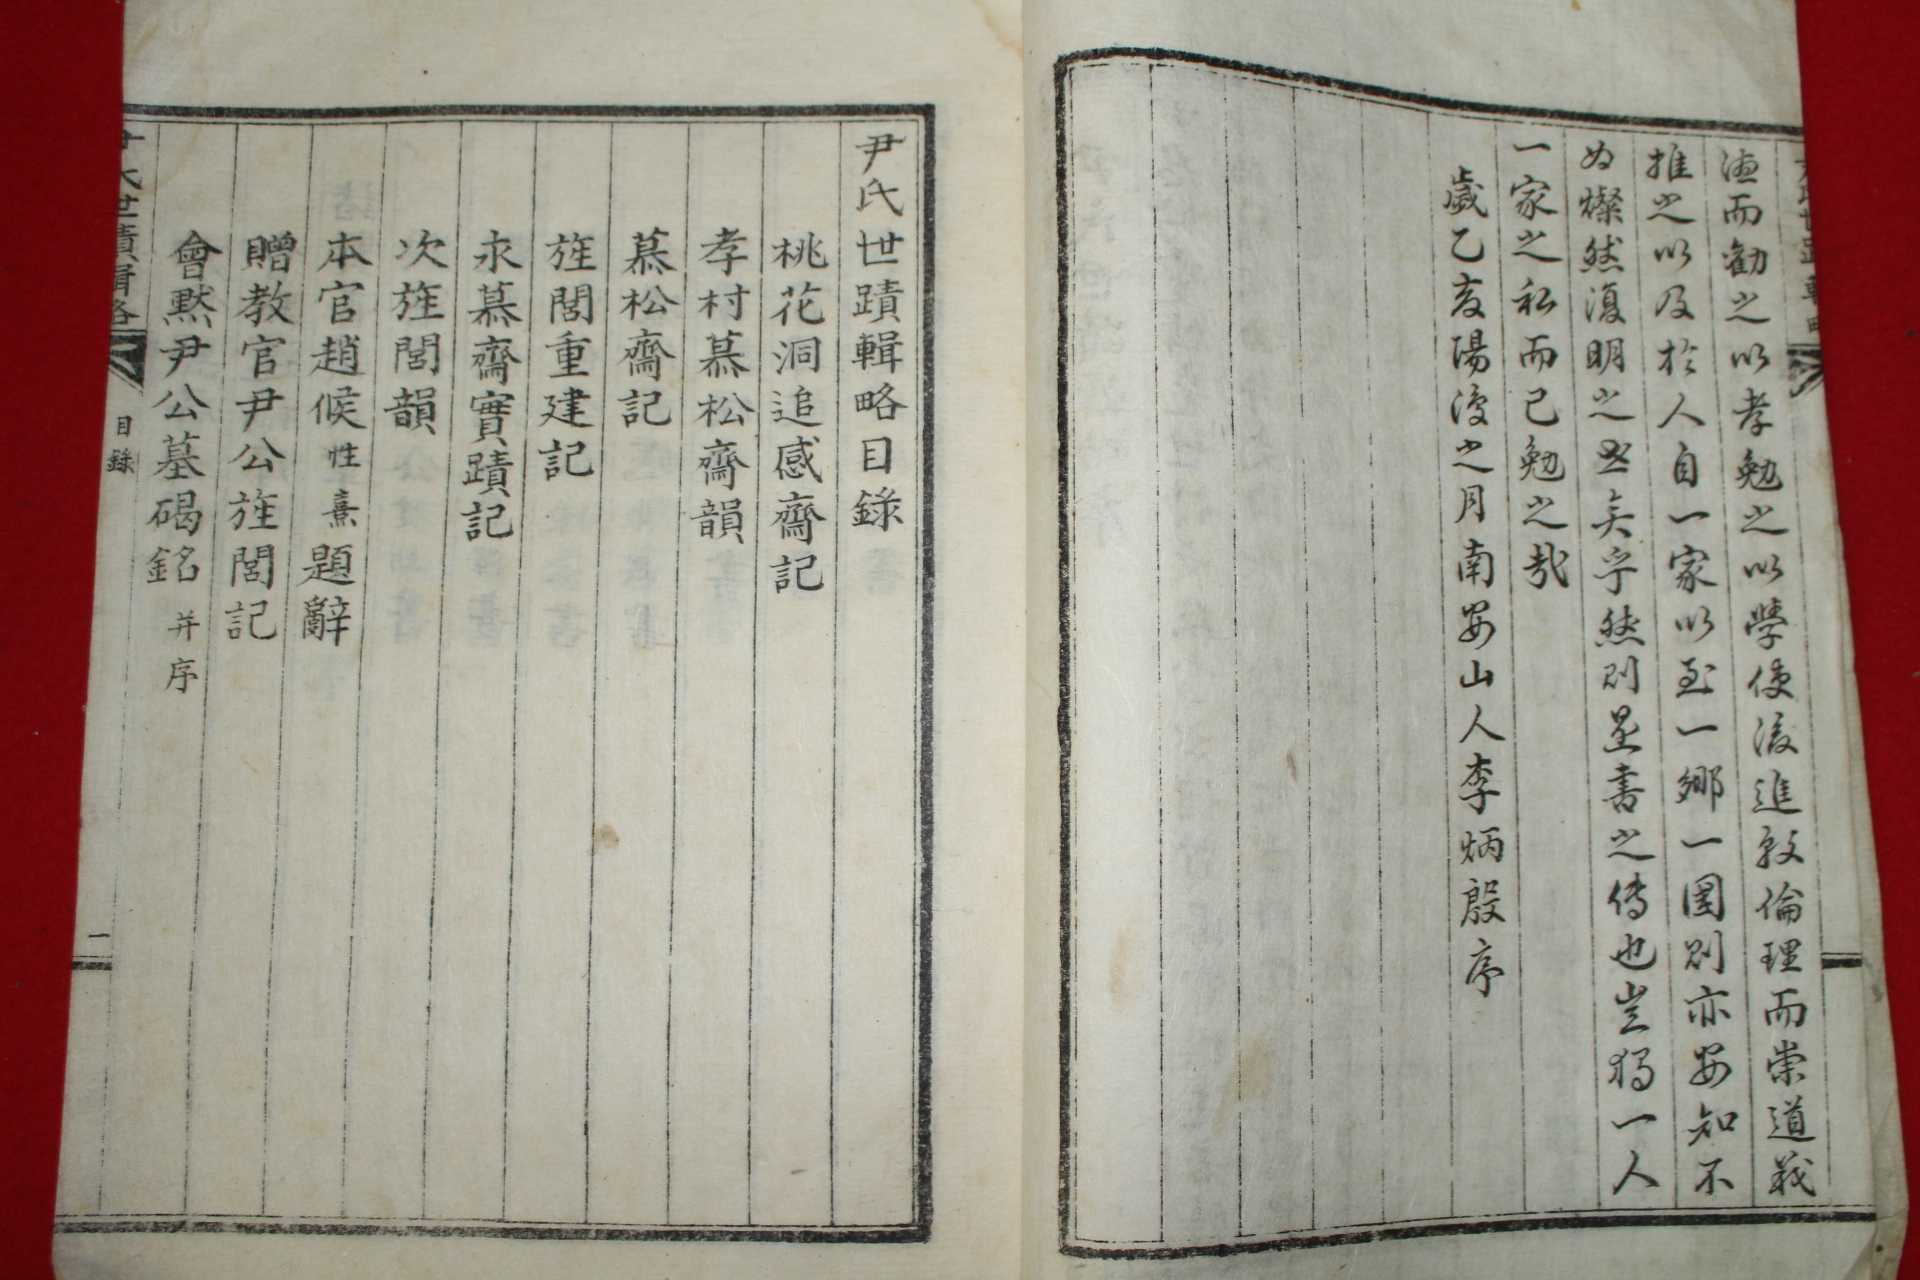 德而勸之以孝勉之以學使後進敦倫理而崇道義
推之以及於人自一家以至一鄉一國則亦安知不
如燦然復明之昔矣乎然則是書之傳也豈獨一人
一家之私而已勉之哉
歲乙亥陽復之月南安山人李炳殷序
尹氏世蹟輯略目錄
桃花洞追感齋記
孝村慕松齋韻
慕松齋記
旌閭重建記
永慕齋實蹟記
次旌閭韻
本官趙候性熹題辭
贈教官尹公旌閭記
會默尹公墓碣銘并序
尹氏世蹟輯略
目錄
一